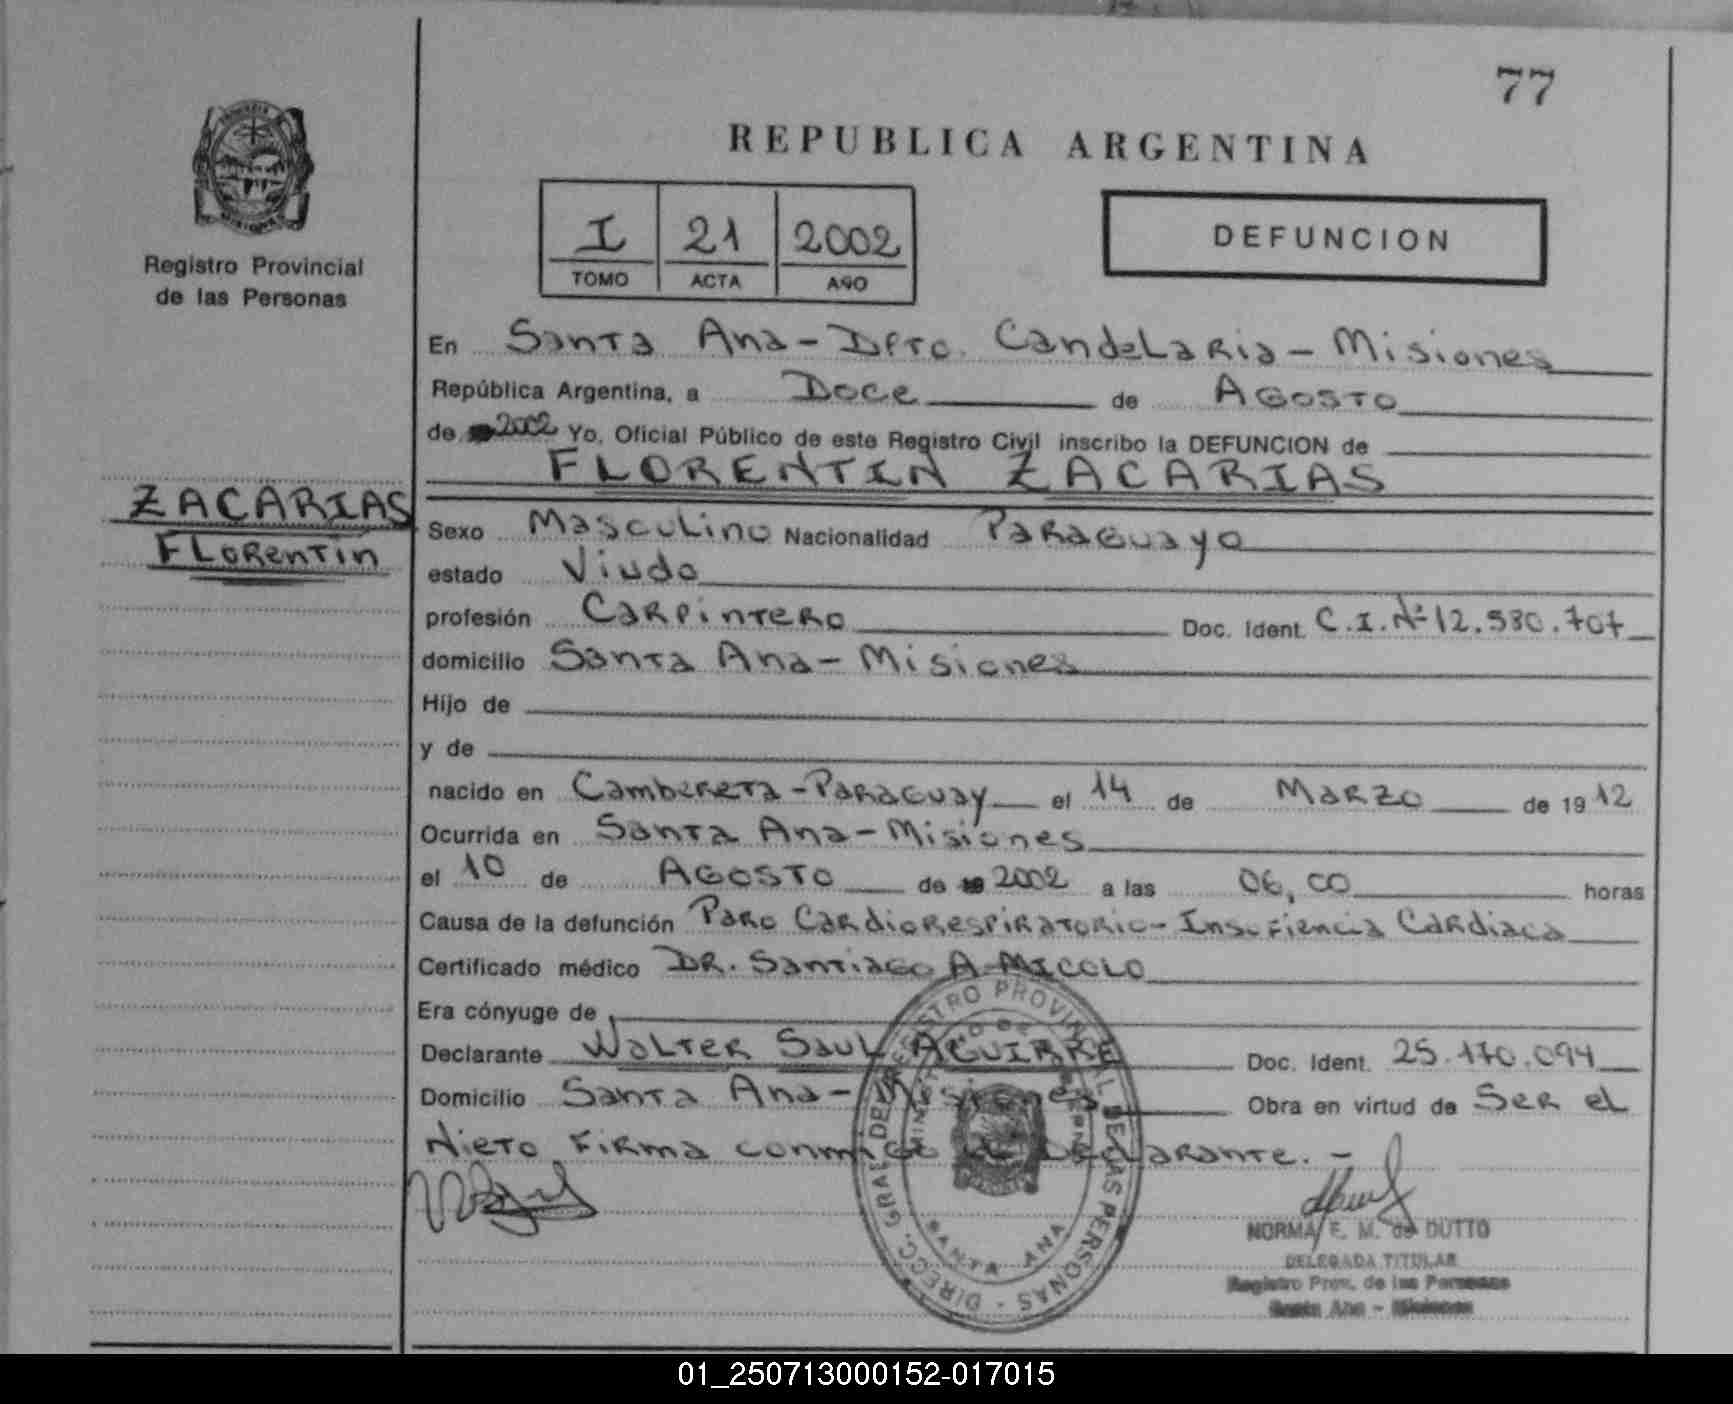 77
REPUBLICA ARGENTINA
I 21 2002
TOMO ACTA AÑO
DEFUNCION
Registro Provincial
de las Personas
En Santa Ana - Dpto. Candelaria - Misiones
República Argentina, a Doce de Agosto
de 2002 Yo, Oficial Público de este Registro Civil inscribo la DEFUNCION de
FLORENTIN ZACARIAS
ZACARIAS
Florentin
Sexo Masculino Nacionalidad Paraguayo
estado Viudo
profesión Carpintero Doc. Ident. C.I.Nº 12.530.707
domicilio Santa Ana - Misiones
Hijo de
y de
nacido en Cambereta - Paraguay el 14 de Marzo de 1912
Ocurrida en Santa Ana - Misiones
el 10 de Agosto de 2002 a las 06,00 horas
Causa de la defunción Paro Cardiorespiratorio - Insufiencia Cardiaca
Certificado médico DR. Santiago A. Micolo
Era cónyuge de
Declarante Walter Saul AGUIRRE Doc. Ident. 25.170.094
Domicilio Santa Ana - Misiones Obra en virtud de Ser el
Nieto Firma conmigo el Declarante. -
NORMA E. M. de DUTTO
DELEGADA TITULAR
Registro Prov. de las Personas
Santa Ana - Misiones
DIRECC. GRAL DE REGISTRO PROVINCIAL DE LAS PERSONAS
MINISTERIO DE GOBIERNO
SANTA ANA
01_250713000152-017015